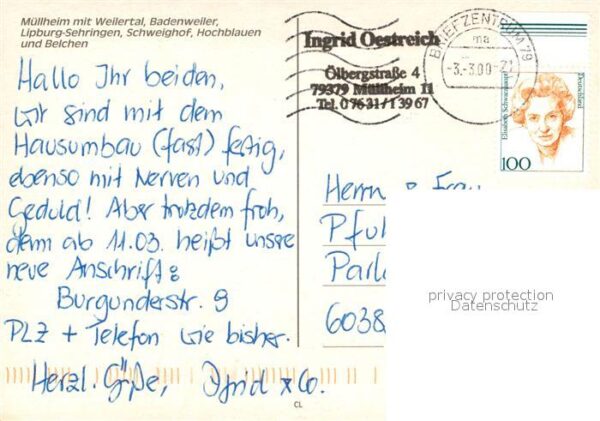 Müllheim mit Weilertal, Badenweiler,
Lipburg-Sehringen, Schweighof, Hochblauen
und Belchen
Hallo Ihr beiden,
wir sind mit dem
Hausumbau (fast) fertig,
ebenso mit Nerven und
Geduld! Aber trotzdem froh,
denn ab 11.03. heißt unsre
neue Anschrift:
Burgunderstr. 9
PLZ + Telefon wie bisher.
Herzl. Grüße, Ingrid & Co.
CL
Ingrid Oestreich
Ölbergstraße 4
79379 Müllheim 11
Tel. 0 76 31 / 1 39 67
BRIEFZENTRUM 79
ma
-3.-3.00-21
Elisabeth Schwarzhaupt
Deutschland
100
Herrn Frau
Pfu
Parl
6038
privacy protection
Datenschutz